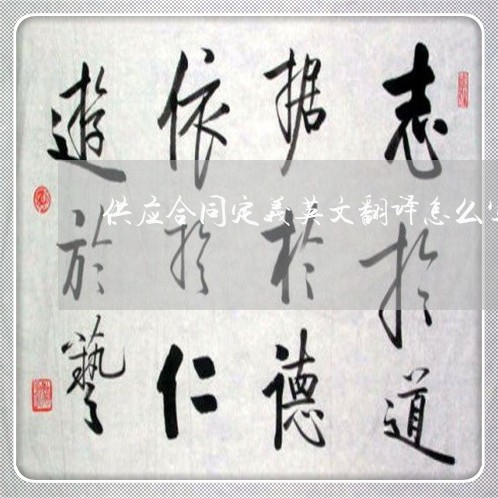 志於道
据於德
依於仁
遊於藝
供应合同定義英文翻译怎么